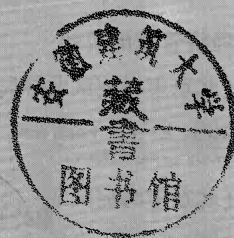 安徽農業大学
藏
書
图书馆